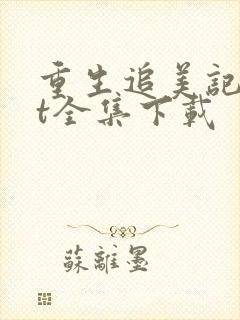 重生追美記
t全集下載
蘇離墨